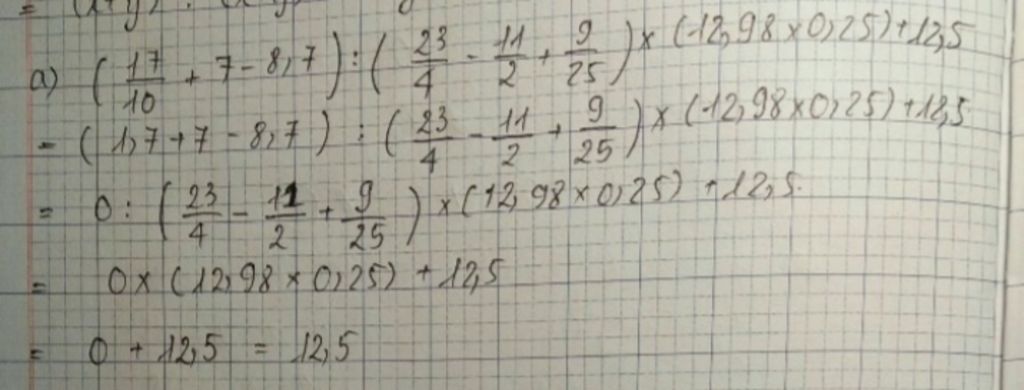 a) (17/10 + 7 - 8,7) : (23/4 - 11/2 + 9/25) × (12,98 × 0,25) + 12,5
= (1,7 + 7 - 8,7) : (23/4 - 11/2 + 9/25) × (12,98 × 0,25) + 12,5
= 0 : (23/4 - 11/2 + 9/25) × (12,98 × 0,25) + 12,5.
= 0 × (12,98 × 0,25) + 12,5
= 0 + 12,5 = 12,5